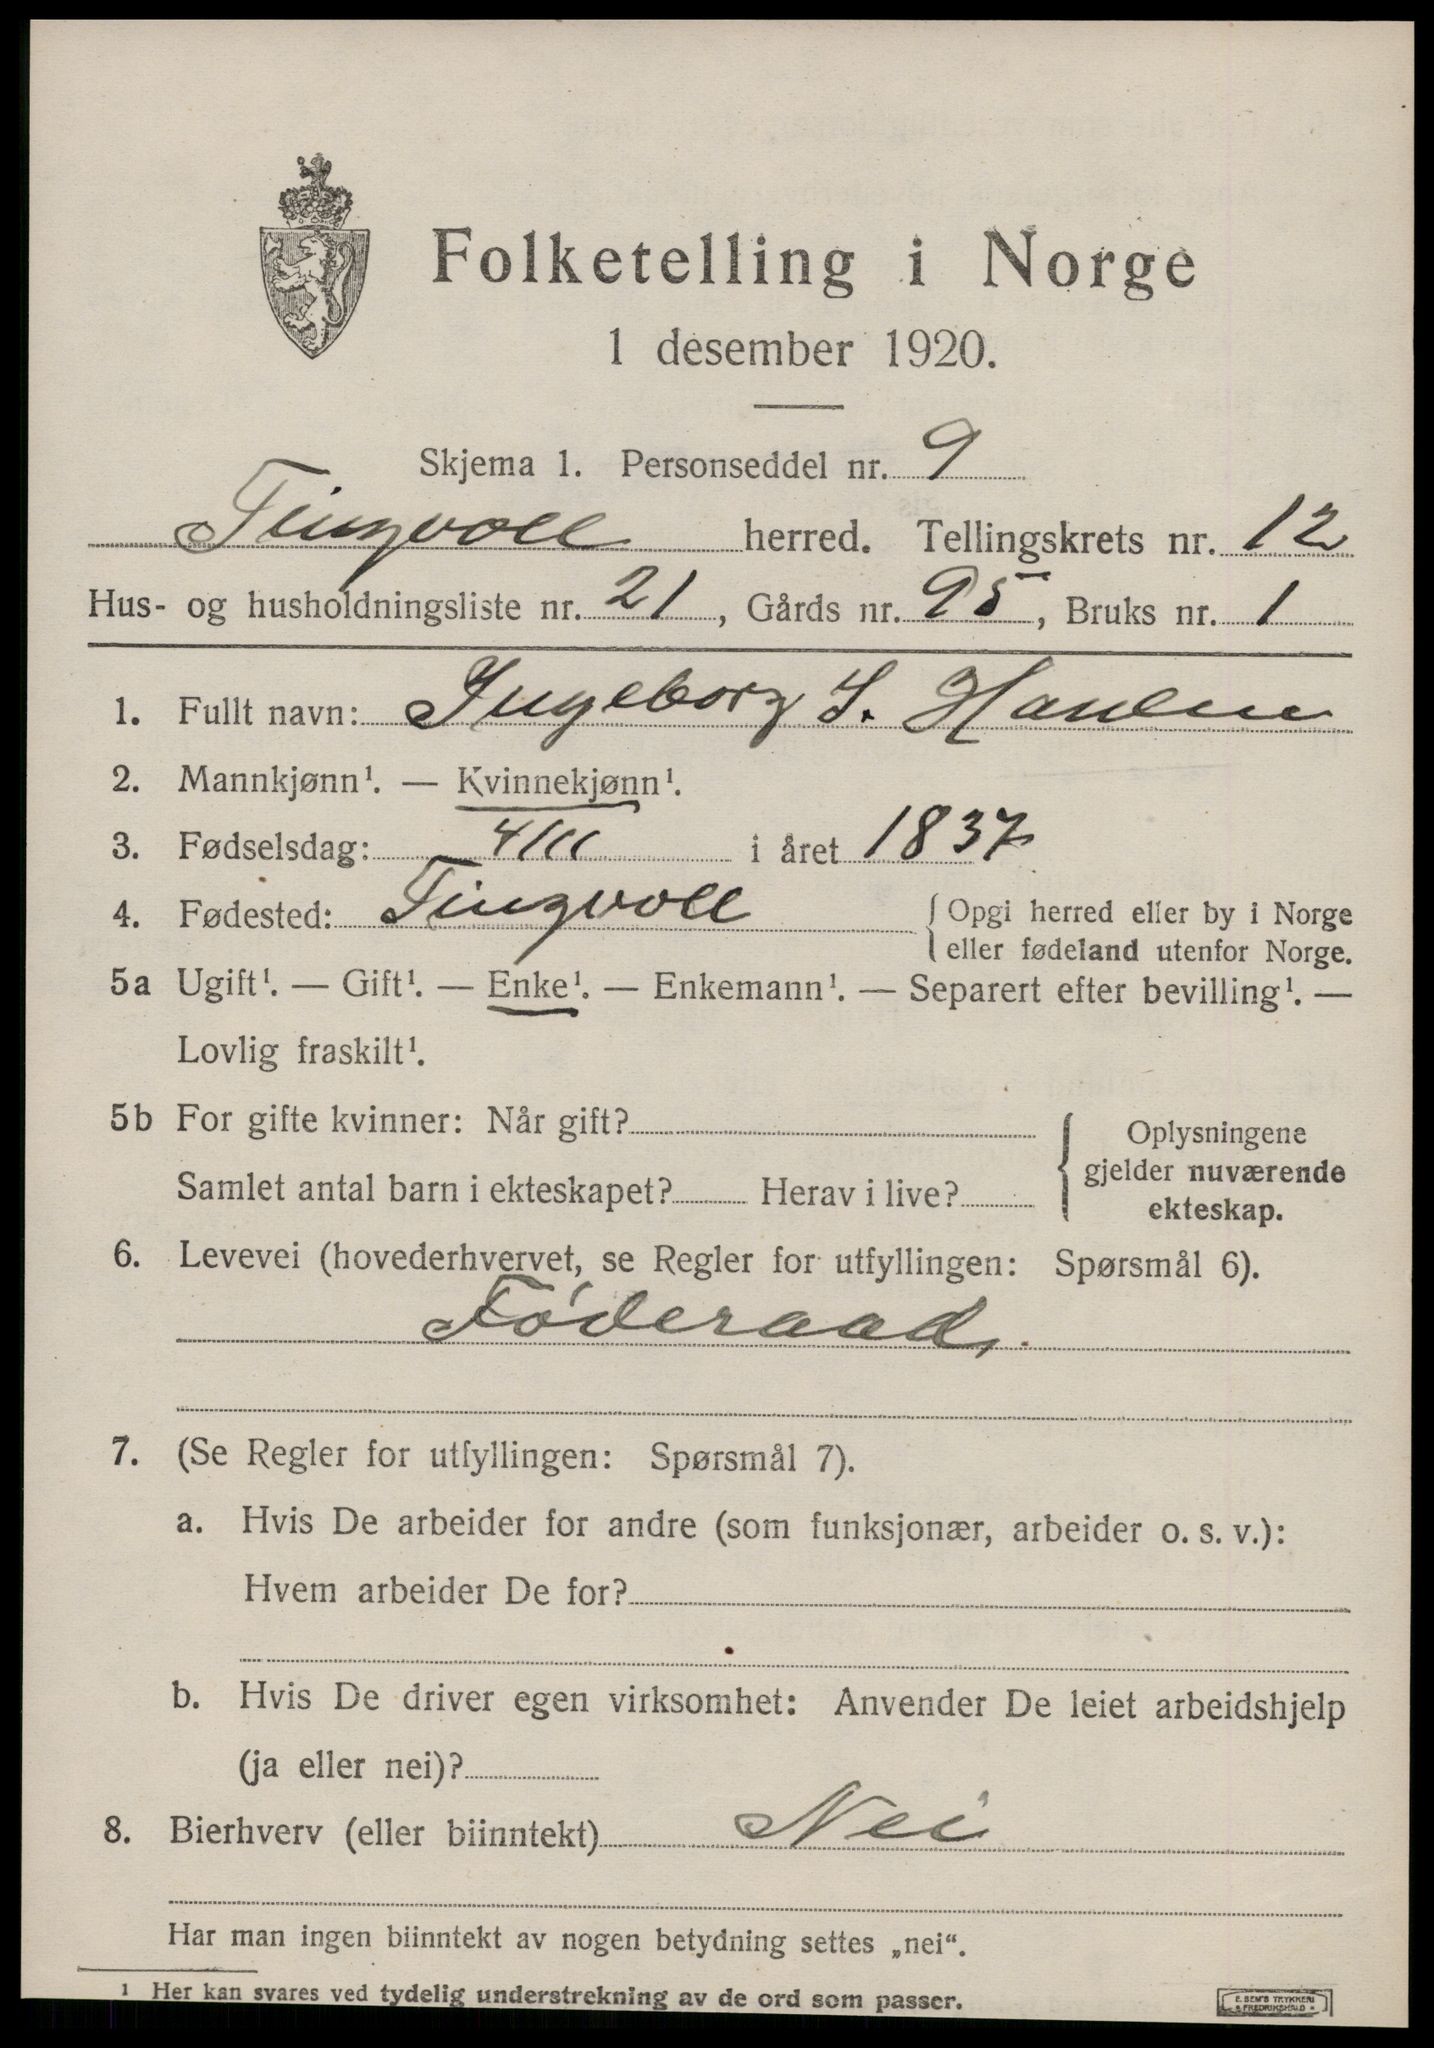 Folketelling i Norge
1 desember 1920.
Skjema 1. Personseddel nr. 9
Tingvoll herred. Tellingskrets nr. 12
Hus- og husholdningsliste nr. 21, Gårds nr. 95, Bruks nr. 1
1. Fullt navn: Ingeborg S.
2. Mannkjønn¹. — Kvinnekjønn¹.
3. Fødselsdag: 4/11 i året 1837
4. Fødested: Tingvoll {Opgi herred eller by i Norge
eller fødeland utenfor Norge.
5a Ugift¹. — Gift¹. — Enke¹. — Enkemann¹. — Separert efter bevilling¹. —
Lovlig fraskilt¹.
5b For gifte kvinner: Når gift? Oplysningene
gjelder nuværende
Samlet antal barn i ekteskapet? Herav i live? ekteskap.
6. Levevei (hovederhvervet, se Regler for utfyllingen: Spørsmål 6).
Føderaad,
7. (Se Regler for utfyllingen: Spørsmål 7).
a. Hvis De arbeider for andre (som funksjonær, arbeider o. s. v.):
Hvem arbeider De for?
b. Hvis De driver egen virksomhet: Anvender De leiet arbeidshjelp
(ja eller nei)?
8. Bierhverv (eller biinntekt) Nei
Har man ingen biinntekt av nogen betydning settes „nei“.
¹ Her kan svares ved tydelig understrekning av de ord som passer.
E. SEM'S TRYKKERI
FREDRIKSHALD